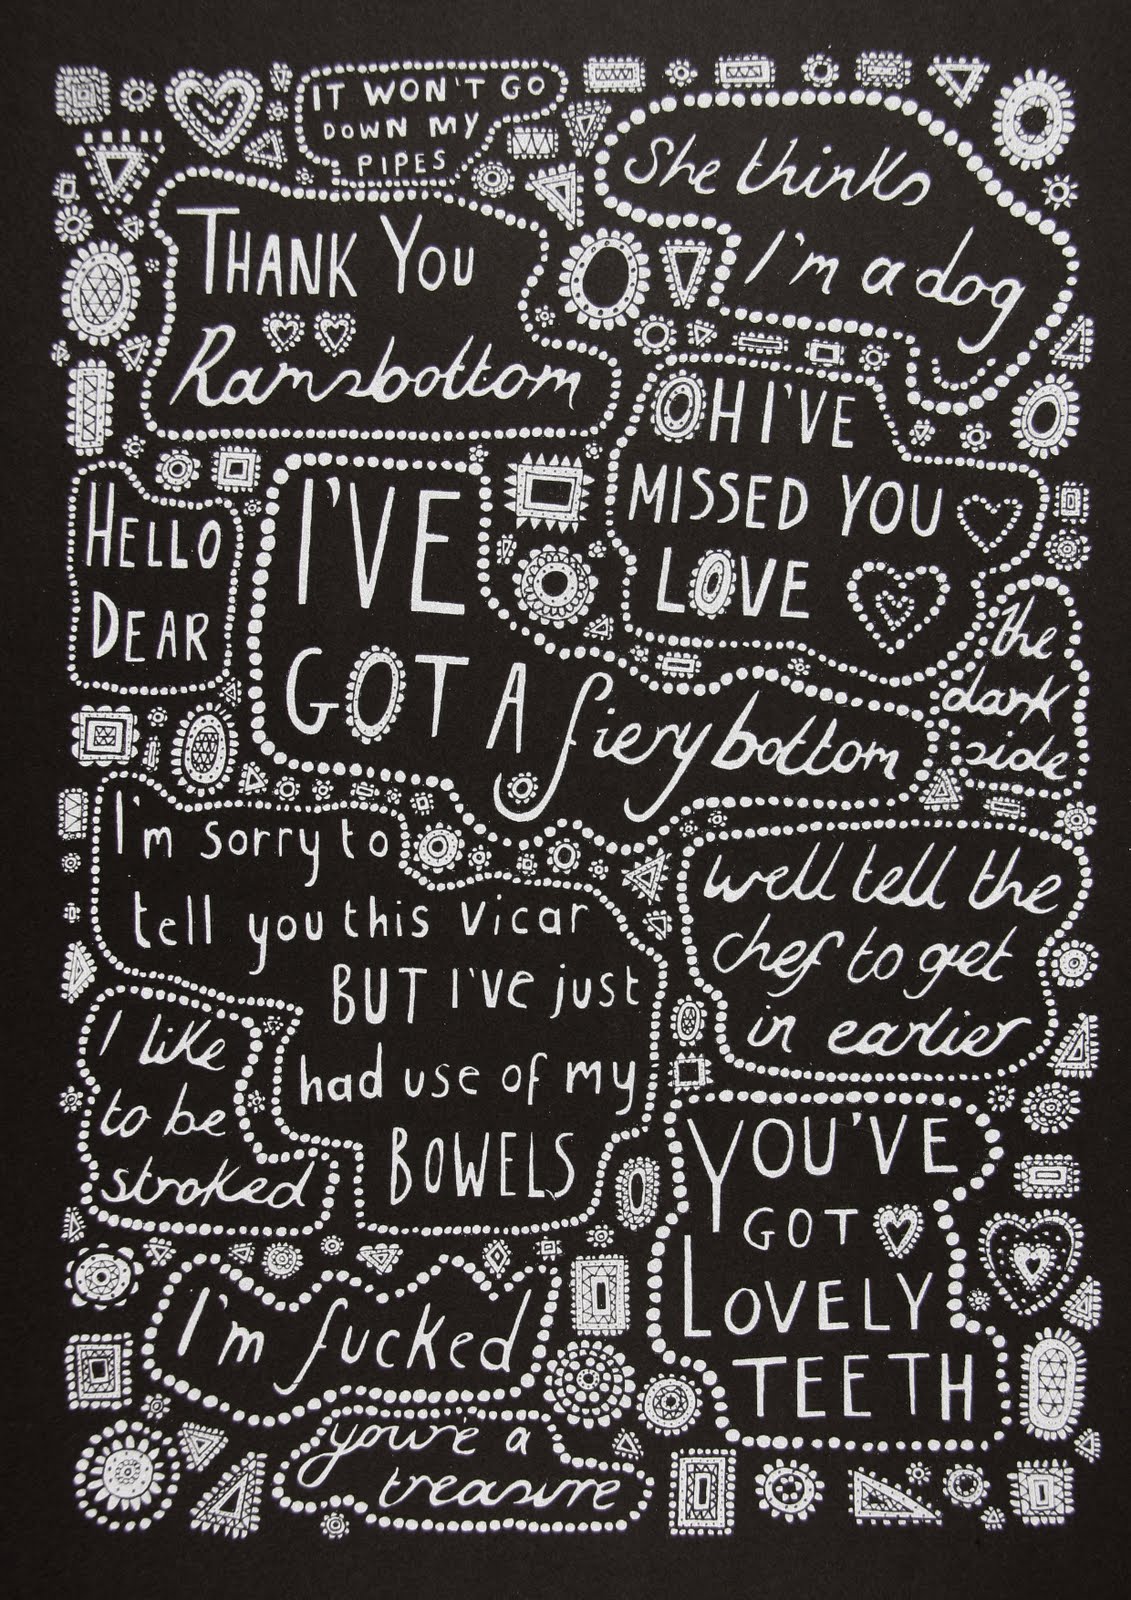 IT WON'T GO
DOWN MY
PIPES
She thinks
I'm a dog
THANK YOU
Ramsbottom
OH I'VE
MISSED YOU
LOVE
HELLO
DEAR
I'VE
GOT A fiery bottom
the
dark
side
I'm sorry to
tell you this vicar
BUT I'VE just
had use of my
BOWELS
well tell the
chef to get
in earlier
I like
to be
stroked
YOU'VE
GOT
LOVELY
TEETH
I'm fucked
you're a
treasure